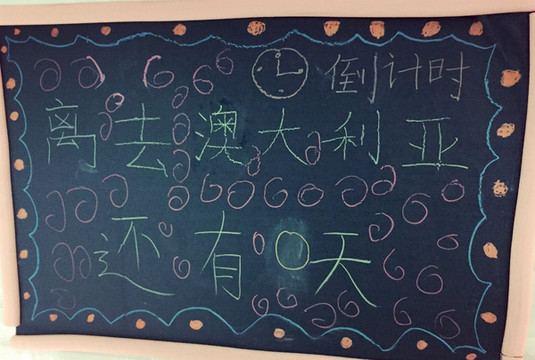 倒计时
离去澳大利亚
还有0天